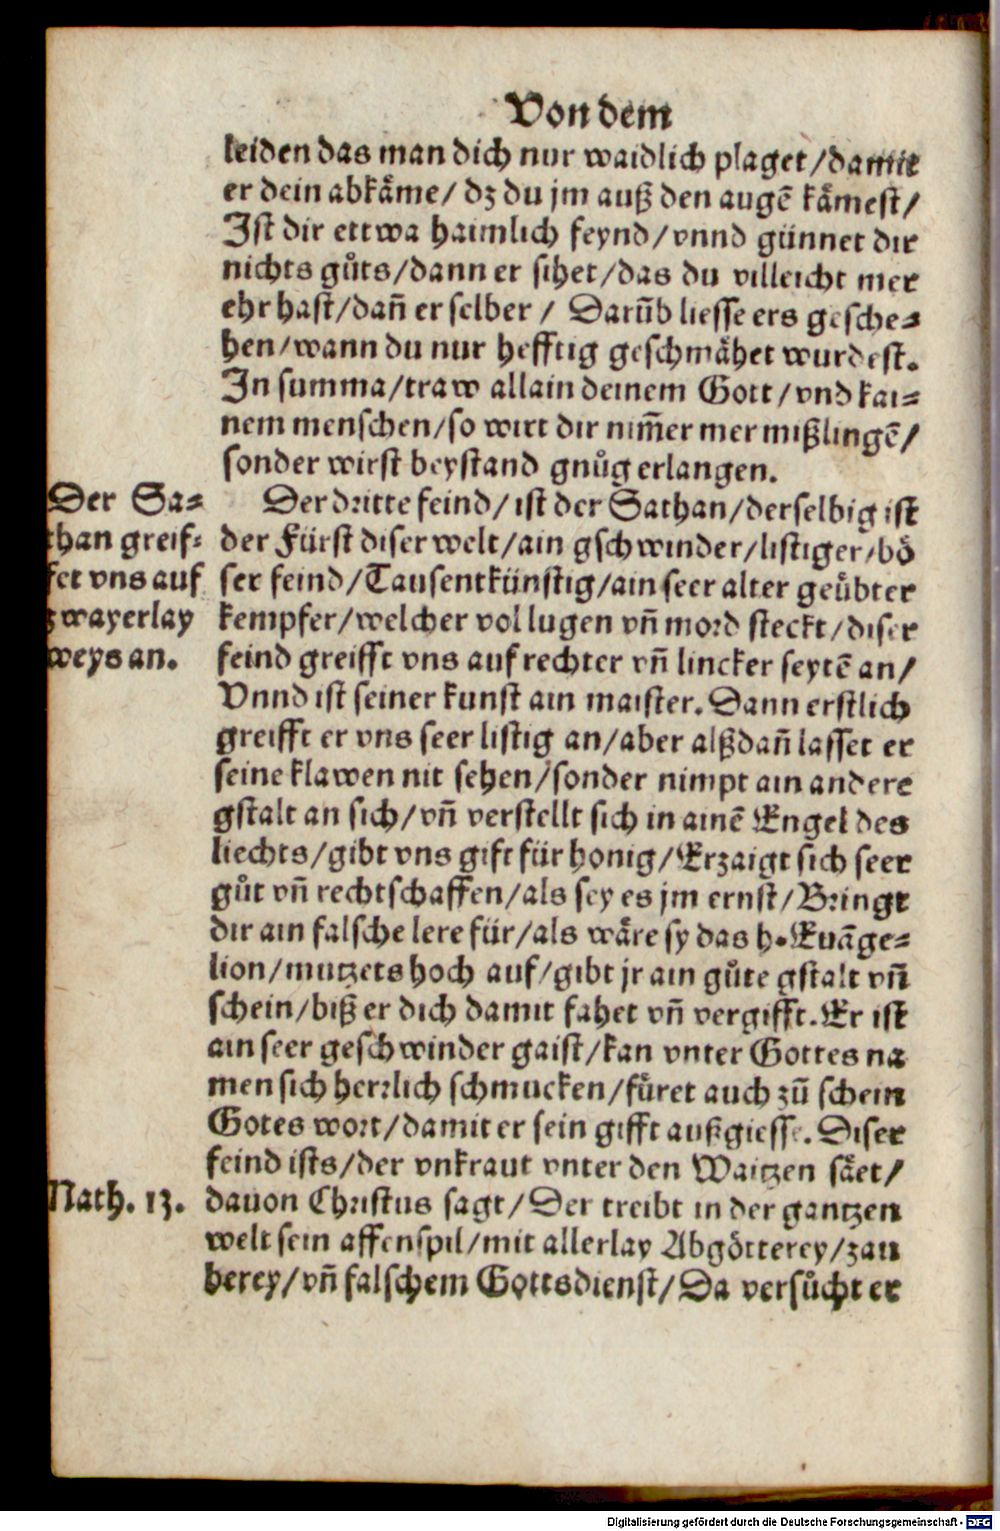 Von dem
leiden das man dich nur waidlich plaget/damit
er dein abkäme/ dz du jm auß den augē kämest/
Ist dir ettwa haimlich feynd/vnnd günnet dir
nichts gůts/dann er sihet/das du villeicht mer
ehr hast/dañ er selber / Darūb liesse ers gesche⸗
hen/wann du nur hefftig geschmähet wurdest.
In summa/traw allain deinem Gott/vnd kai⸗
nem menschen/so wirt dir nim̄er mer mißlingē/
sonder wirst beystand gnůg erlangen.
Der Sa⸗
than greif⸗
fet vns auf
zwayerlay
weys an.
Der dritte feind/ist der Sathan/derselbig ist
der Fürst diser welt/ain gschwinder/listiger/bö
ser feind/Tausentkünstig/ain seer alter geůbter
kempfer/welcher vol lugen vñ mord steckt/diser
feind greifft vns auf rechter vñ lincker seytē an/
Vnnd ist seiner kunst ain maister. Dann erstlich
greifft er vns seer listig an/aber alßdañ lasset er
seine klawen nit sehen/sonder nimpt ain andere
gstalt an sich/vñ verstellt sich in ainē Engel des
liechts/gibt vns gift für honig/Erzaigt sich seer
gůt vñ rechtschaffen/als sey es jm ernst/Bringt
dir ain falsche lere für/als wäre sy das h. Euāge⸗
lion/mutzets hoch auf/gibt jr ain gůte gstalt vñ
schein/biß er dich damit fahet vñ vergifft. Er ist
ain seer geschwinder gaist/kan vnter Gottes na
men sich herrlich schmucken/füret auch zů schein
Gotes wort/damit er sein gifft außgiesse. Diser
feind ists/der vnkraut vnter den Waitzen säet/
Math. 13.
dauon Christus sagt/Der treibt in der gantzen
welt sein affenspil/mit allerlay Abgötterey/zau
berey/vñ falschem Gottsdienst/Da versůcht er
Digitalisierung gefördert durch die Deutsche Forschungsgemeinschaft - DFG